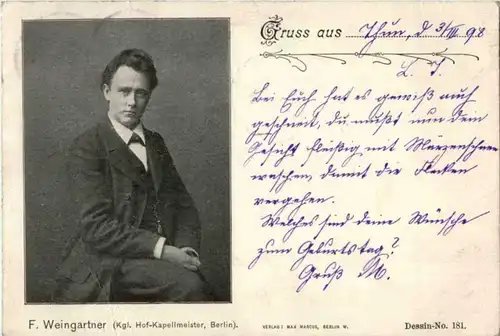 Gruss aus Thun, d 3/III 98
L. T.
Bei Euch hat es gewiß auch
geschneit, du mußt nun dein
Gesicht fleißig mit Märzenschnee
waschen, damit die Flecken
vergehen.
Welches sind deine Wünsche
zum Geburtstag?
Gruß M.
F. Weingartner (Kgl. Hof-Kapellmeister, Berlin).
VERLAG: MAX MARCUS, BERLIN W.
Dessin-No. 181.